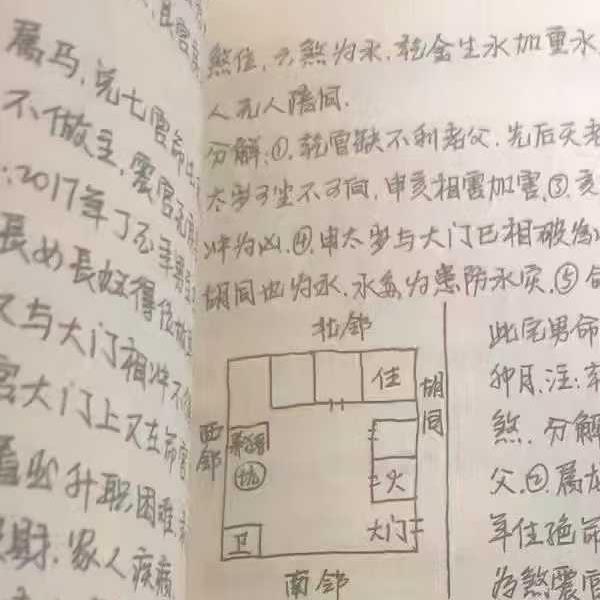 属马，完七宫命
不做主，震宫
：2017年丁酉年
長女長好得後
又与大门相冲不
宫大门上又在命宫
看出升职困难
财，家人疾病
煞位，六煞为水，乾金生水加重水
人无人陪同．
分解：①，乾宫缺不利老父，先后天老
太岁可坐不可向，申亥相害加害，③，亥
冲为凶，④，申太岁与大门巳相破为
胡同也为水，水多为患防水灾，⑤
北邻
住
胡同
西邻
坑
火
大门
卫
南邻
此宅男命
卯月．注：
煞．分解
父．②属龙
年住绝命
为煞震宫